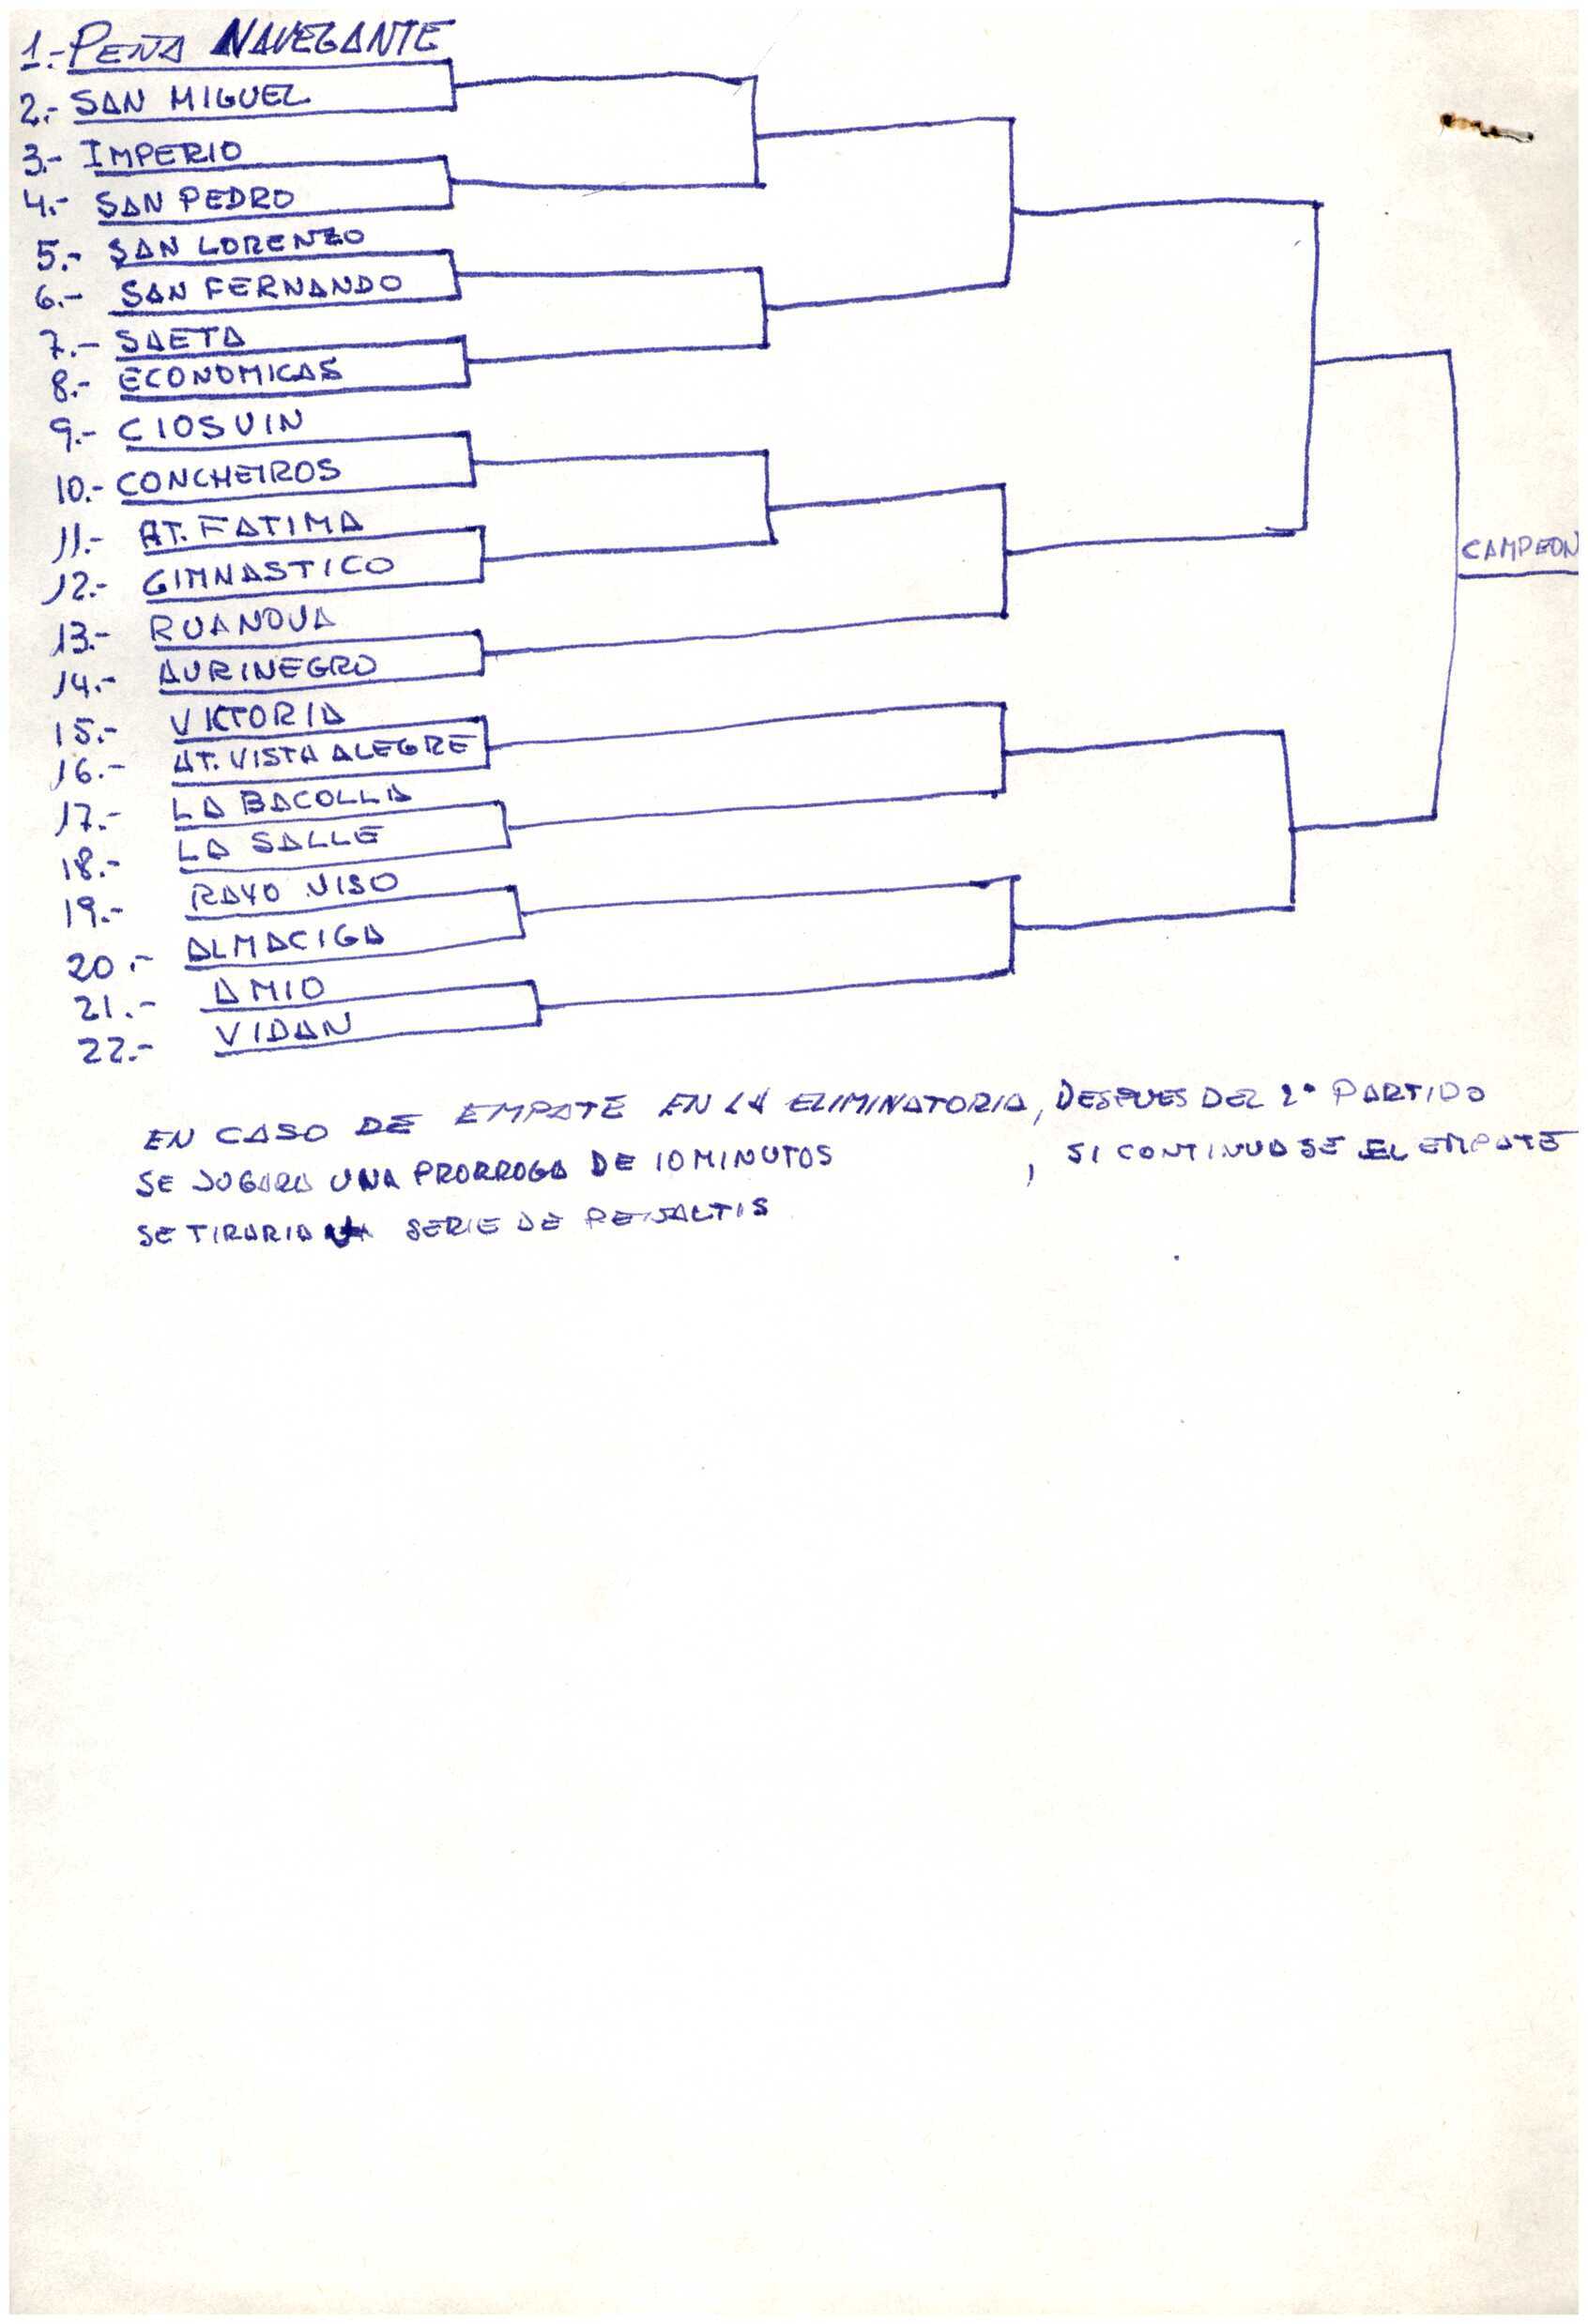 1.- PEÑA NAVEGANTE
2.- SAN MIGUEL
3.- IMPERIO
4.- SAN PEDRO
5.- SAN LORENZO
6.- SAN FERNANDO
7.- SAETA
8.- ECONOMICAS
9.- CIOSVIN
10.- CONCHEIROS
11.- AT. FATIMA
12.- GIMNASTICO
13.- RUANOVA
14.- AURINEGRO
15.- VICTORIA
16.- AT. VISTA ALEGRE
17.- LA BACOLLA
18.- LA SALLE
19.- RAYO VISO
20.- ALMACIGA
21.- AMIO
22.- VIDAN
CAMPEON
EN CASO DE EMPATE EN LA ELIMINATORIA, DESPUES DEL 2º PARTIDO
SE JUGARA UNA PRORROGA DE 10 MINUTOS , SI CONTINUASE EL EMPATE
SE TIRARIA SERIE DE PENALTIS